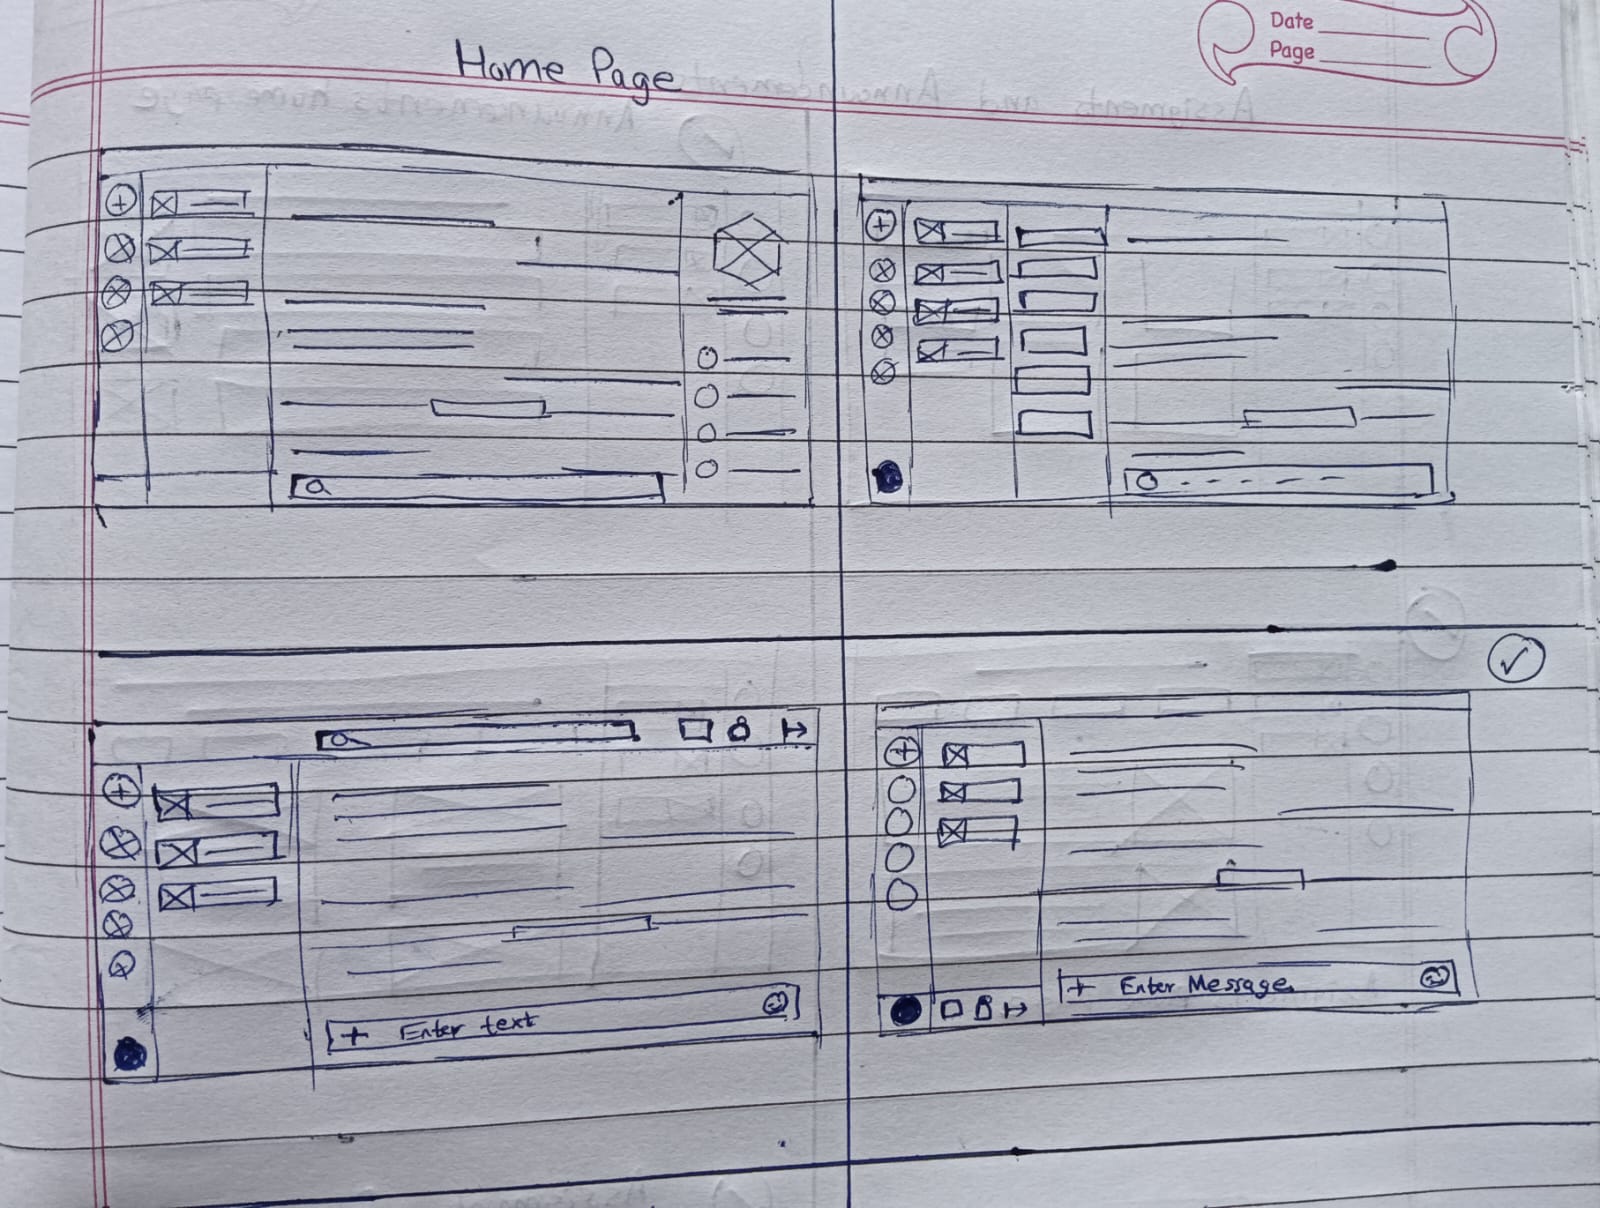 Date
Page
Home Page
+ Enter text
+ Enter Message